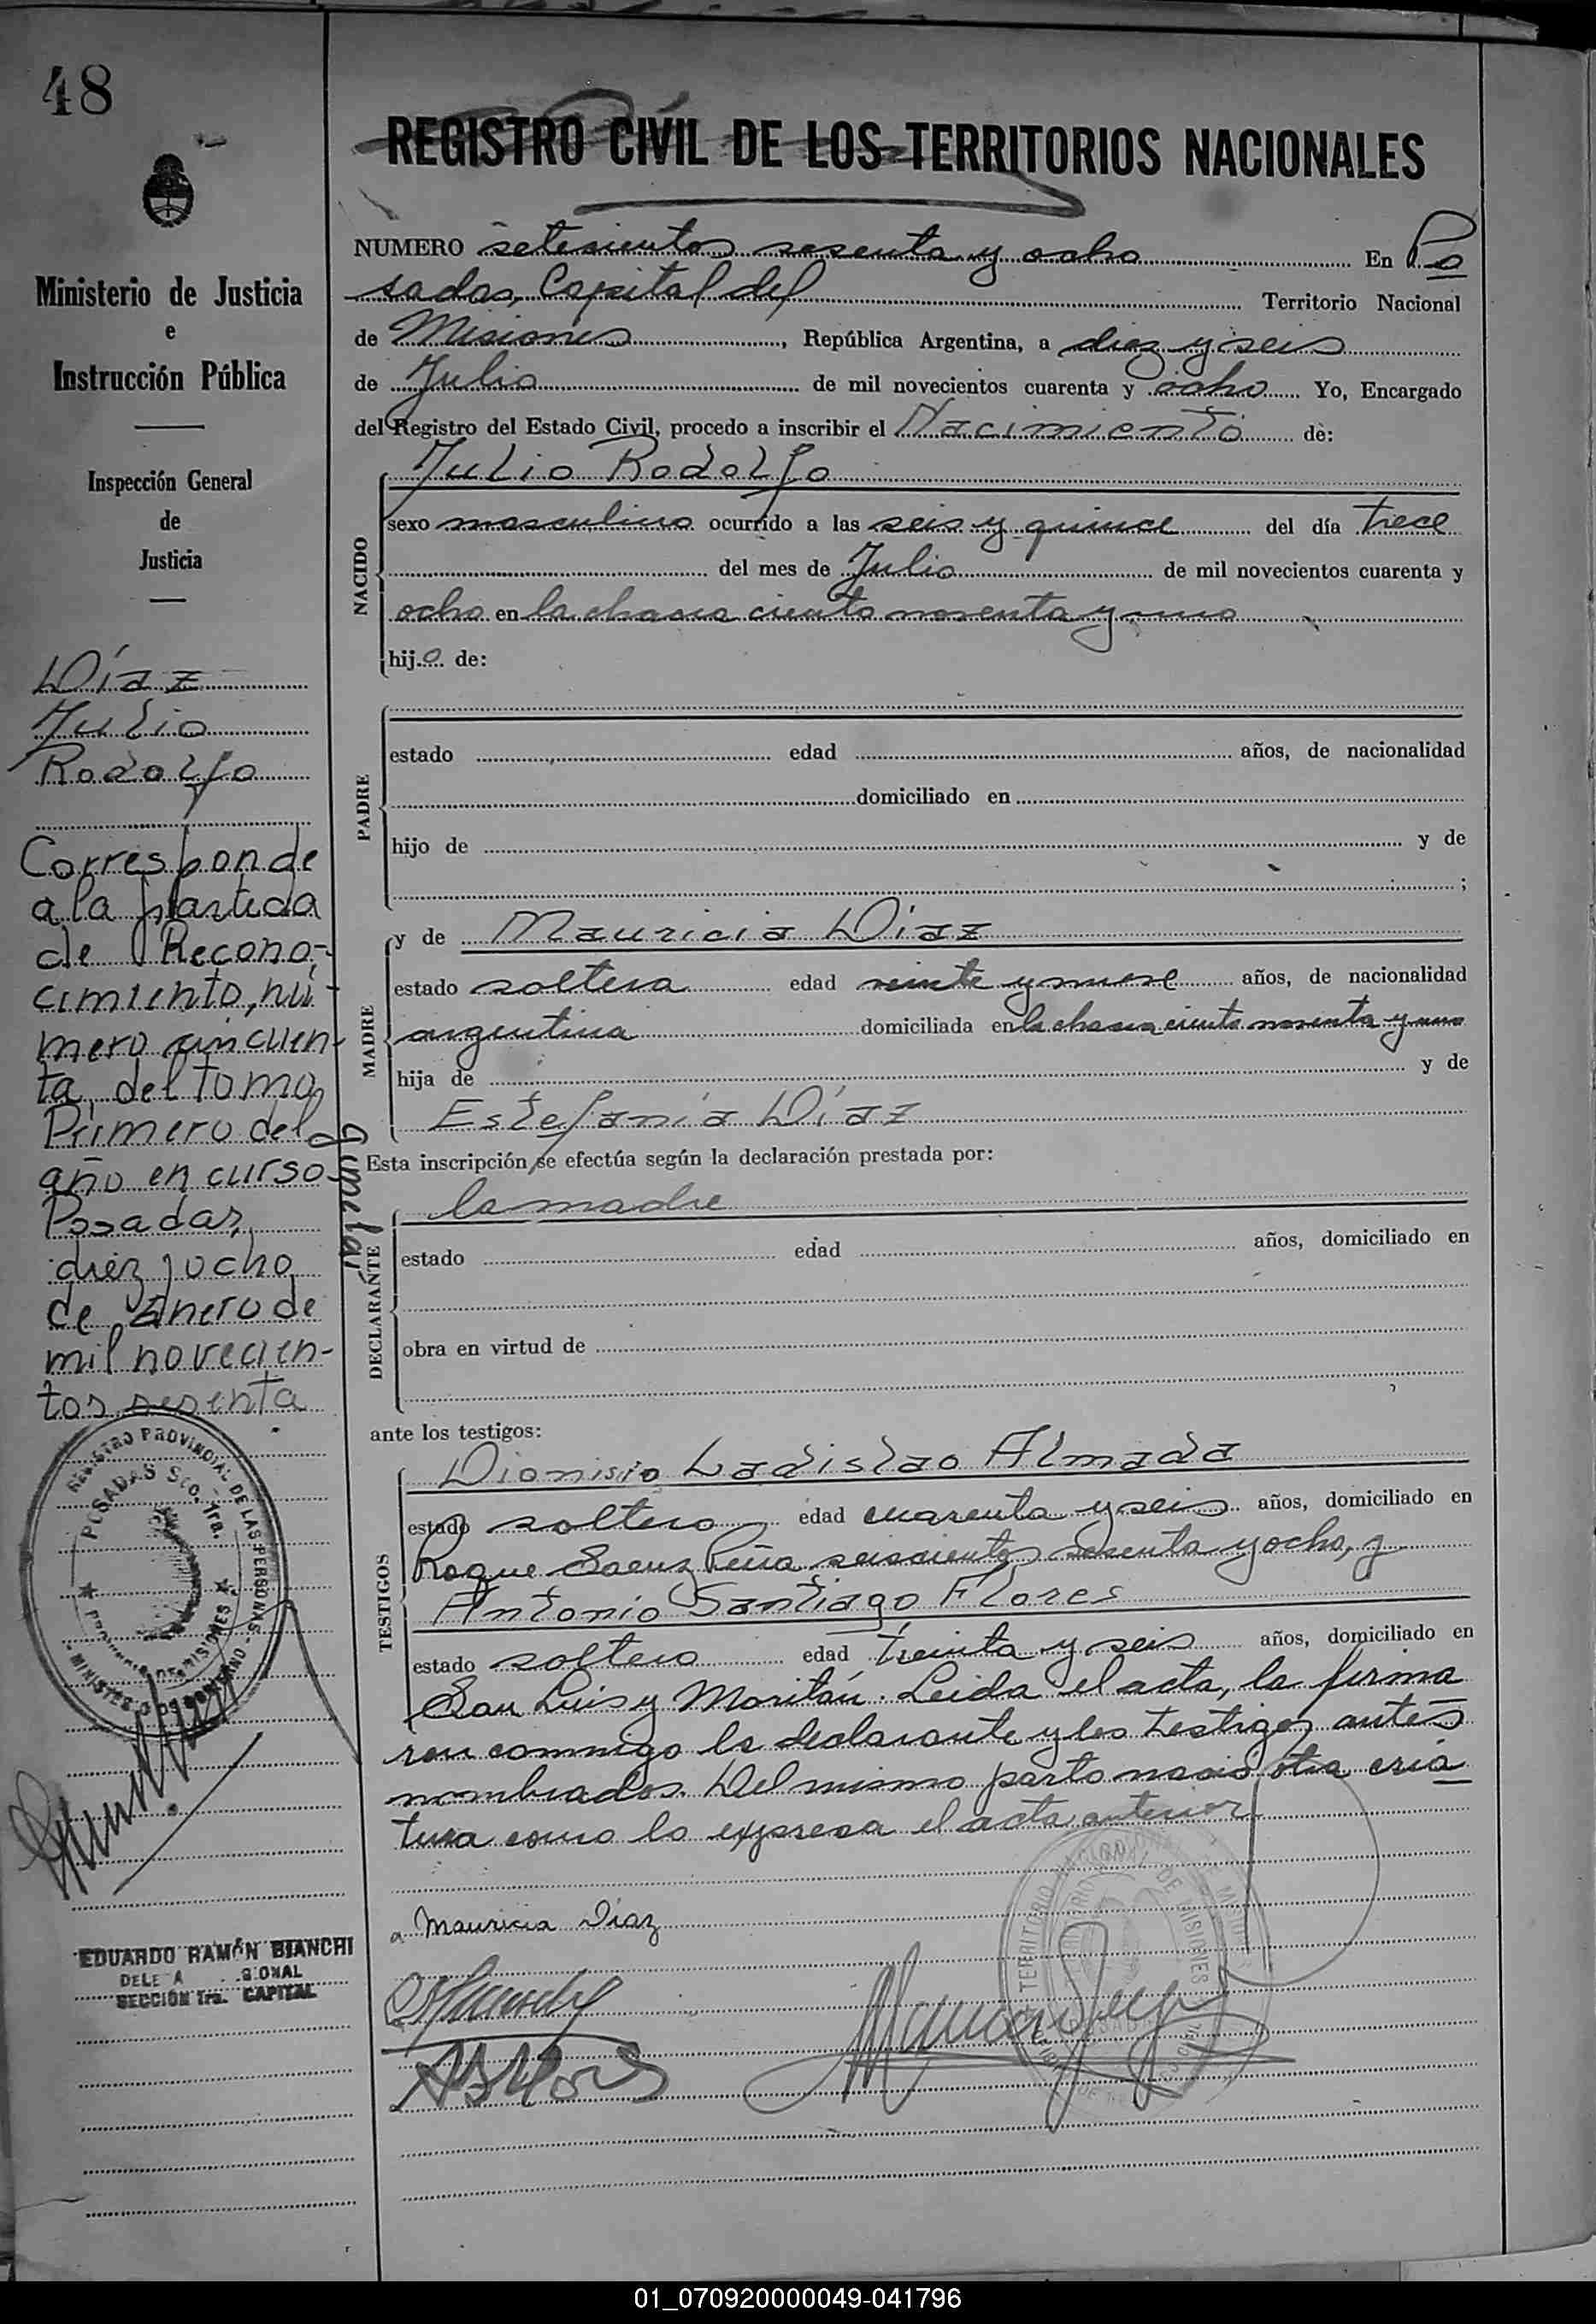 48
Ministerio de Justicia
e
Instrucción Pública
Inspección General
de
Justicia
Díaz
Julio
Rodolfo
Corresponde
a la partida
de Recono-
cimiento, nú-
mero cincuen-
ta, del tomo
Primero del
año en curso
Posadas,
diez y ocho
de Enero de
mil novecien-
tos sesenta
REGISTRO PROVINCIAL DE LAS PERSONAS
POSADAS Scc. 1ra.
PROVINCIA DE MISIONES
MINISTERIO DE GOBIERNO
EDUARDO RAMÓN BIANCHI
SECCIÓN 1ra. CAPITAL
REGISTRO CIVIL DE LOS TERRITORIOS NACIONALES
NUMERO setecientos sesenta y ocho En Po
sadas, Capital del Territorio Nacional
de Misiones, República Argentina, a diez y seis
de Julio de mil novecientos cuarenta y ocho Yo, Encargado
del Registro del Estado Civil, procedo a inscribir el Nacimiento de:
NACIDO
Julio Rodolfo
sexo masculino ocurrido a las seis y quince del día trece
del mes de Julio de mil novecientos cuarenta y
ocho en la chacra ciento noventa y uno
hijo de:
PADRE
estado edad años, de nacionalidad
domiciliado en
hijo de y de
;
MADRE
y de Mauricia Díaz
estado soltera edad veinte y nueve años, de nacionalidad
argentina domiciliada en la chacra ciento noventa y uno
hija de y de
Estefanía Díaz
Esta inscripción se efectúa según la declaración prestada por:
DECLARANTE
la madre
estado edad años, domiciliado en
obra en virtud de
ante los testigos:
TESTIGOS
Dionisio Ladislao Almada
estado soltero edad cuarenta y seis años, domiciliado en
Roque Saenz Peña seiscientos sesenta y ocho, y
Antonio Santiago Flores
estado soltero edad treinta y seis años, domiciliado en
San Luis y Moritán. Leida el acta, la firma
ron conmigo la declarante y los testigos antes
nombrados. Del mismo parto nació otra cria
tura como lo expresa el acta anterior.
Mauricia Diaz
01_070920000049-041796